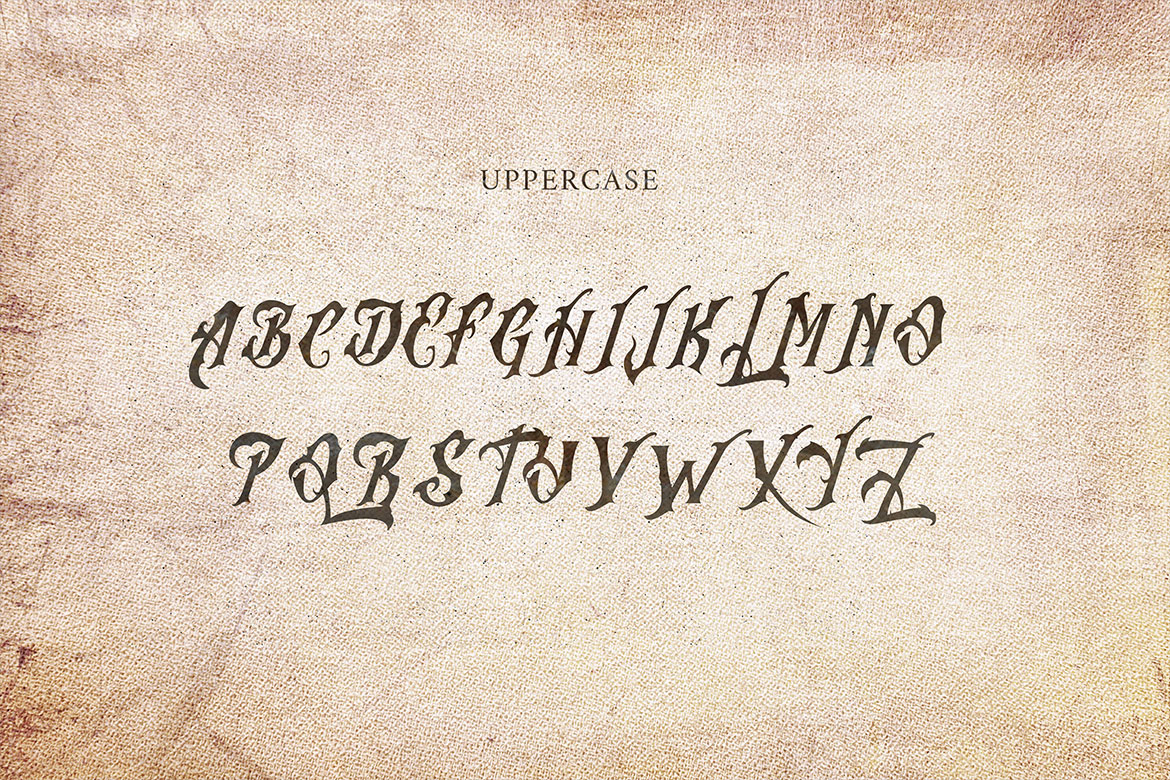 UPPERCASE
ABCDEFGHIJKLMNO
PQRSTUVWXYZ